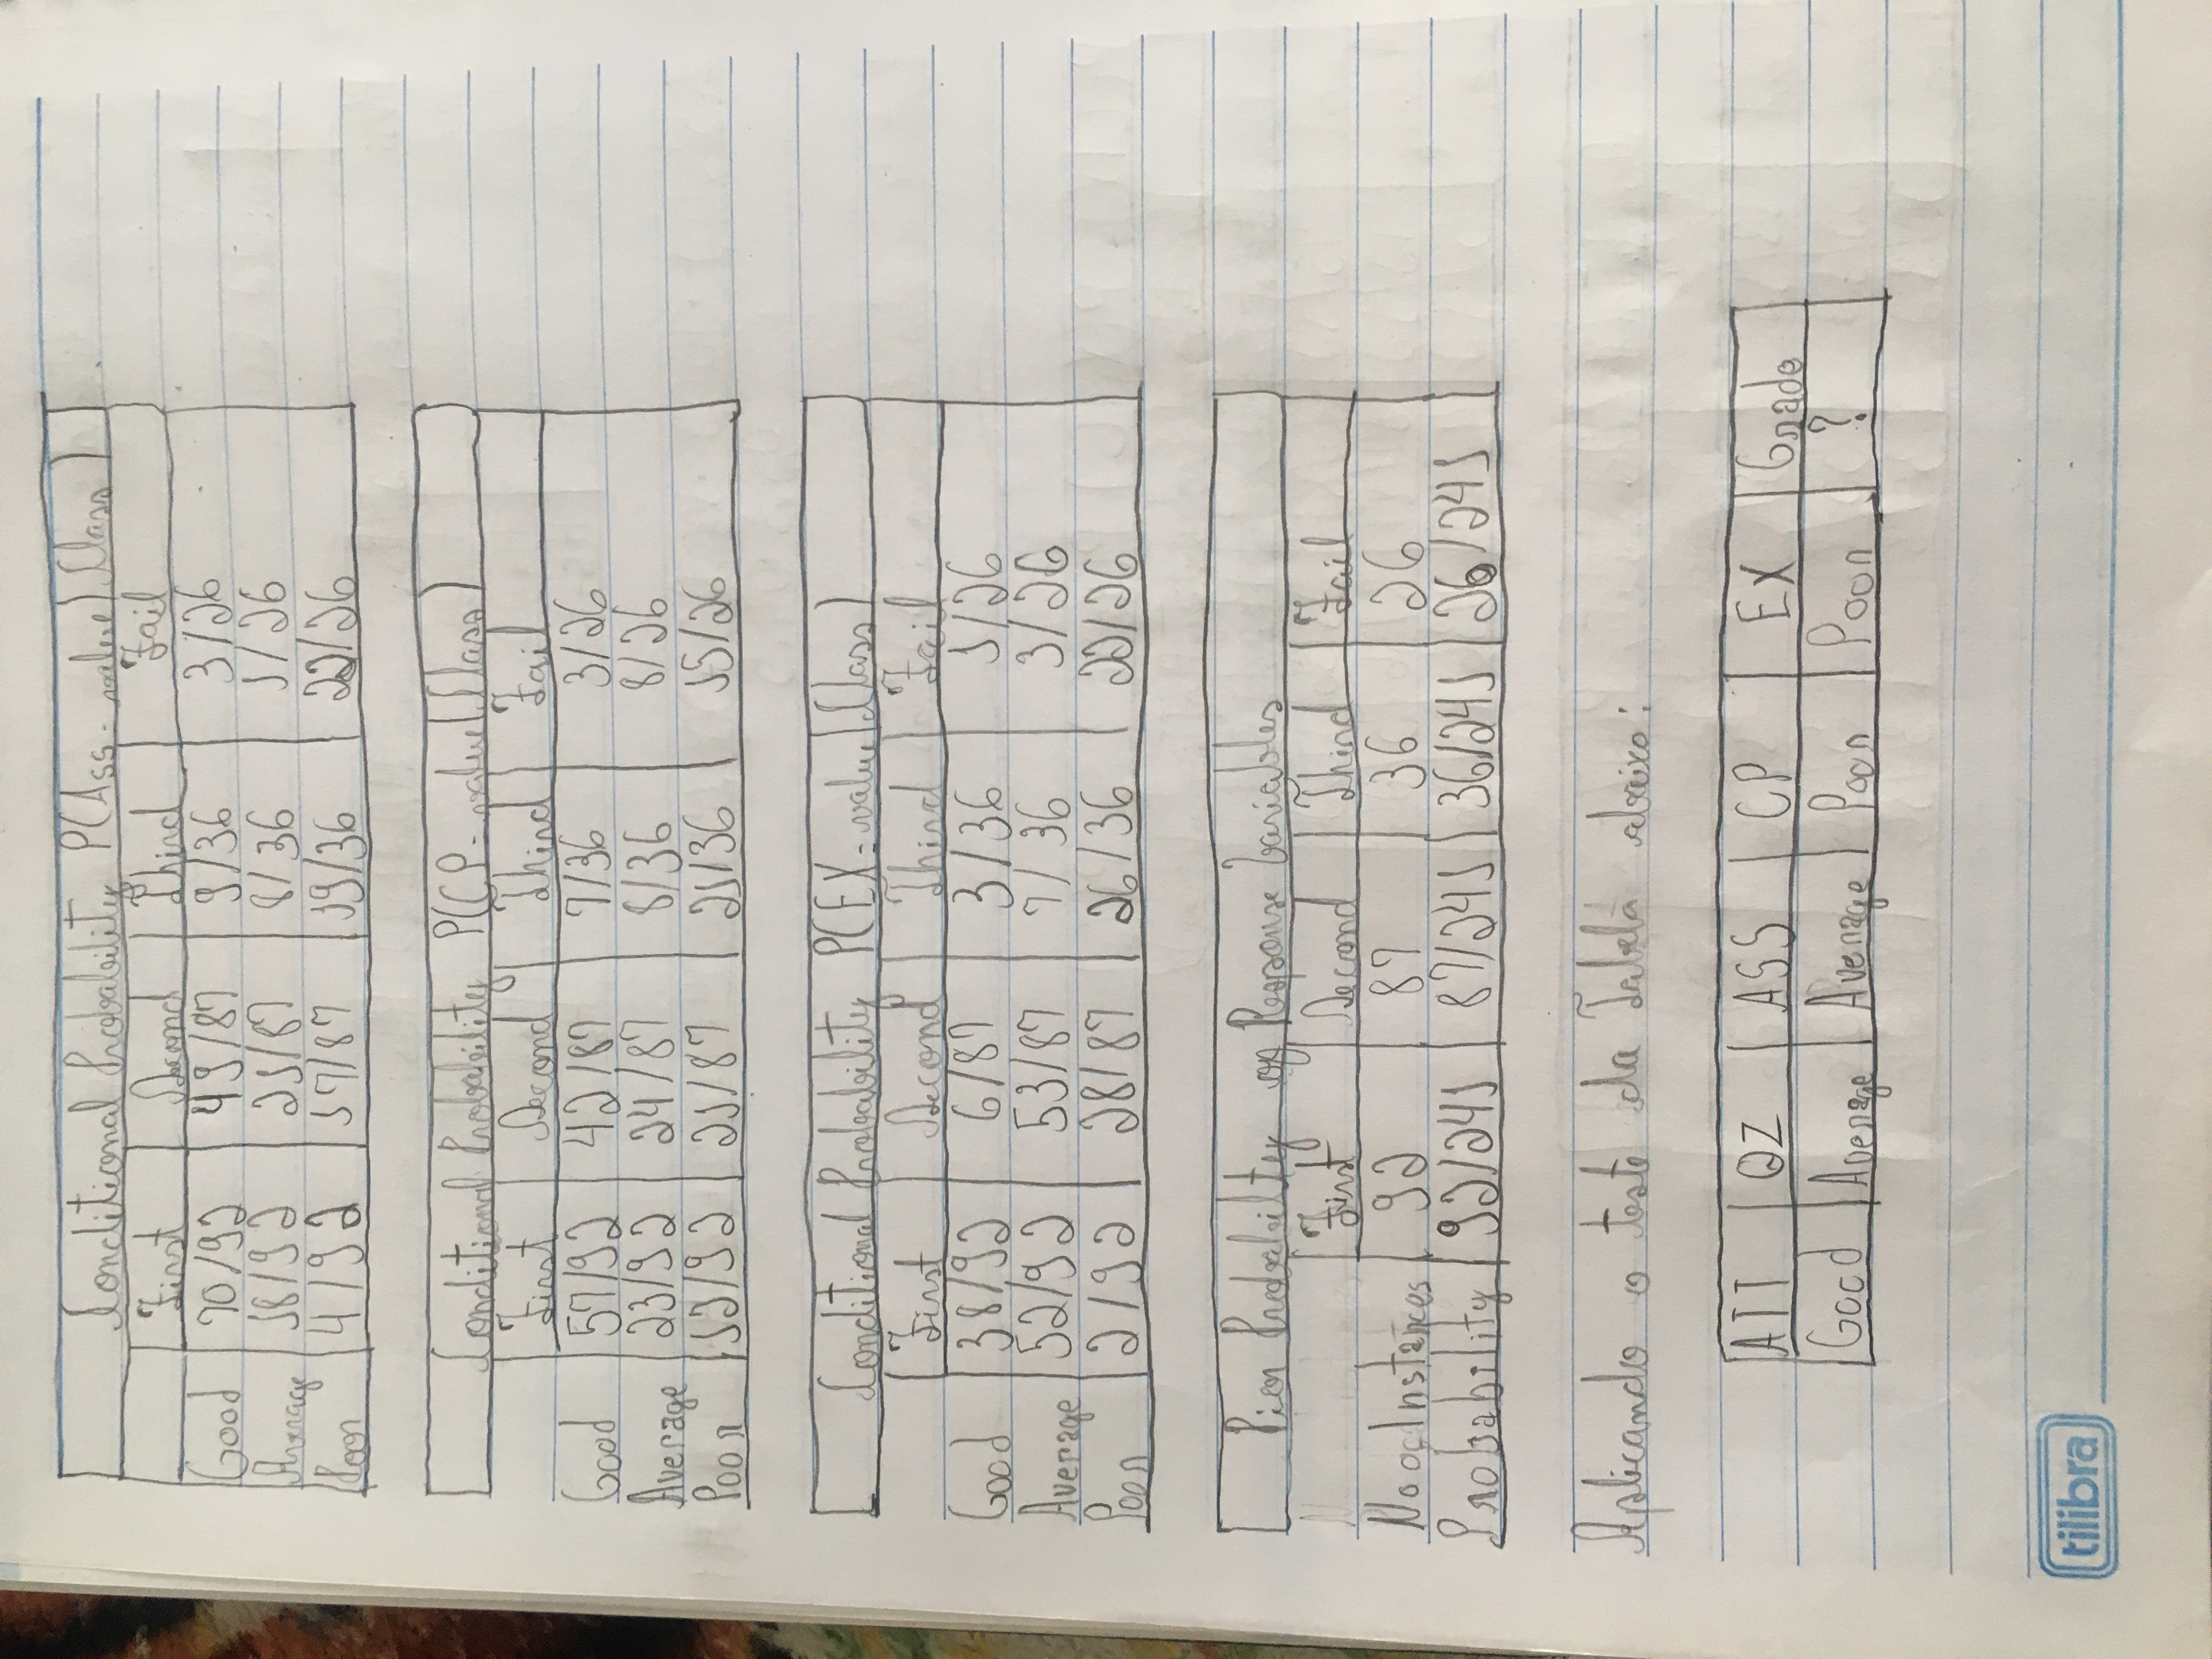 Conditional Probability P(Ass-value|Class)
First Second Third Fail
Good 70/92 49/87 9/36 3/26
Average 18/92 21/87 8/36 1/26
Poor 4/92 17/87 19/36 22/26
Conditional Probability P(CP-value|Class)
First Second Third Fail
Good 57/92 42/87 7/36 3/26
Average 23/92 24/87 8/36 8/26
Poor 12/92 21/87 21/36 15/26
Conditional Probability P(EX-value|Class)
First Second Third Fail
Good 38/92 6/87 3/36 1/26
Average 52/92 53/87 7/36 3/26
Poor 2/92 28/87 26/36 22/26
Prior Probability of Response Variables
First Second Third Fail
No of Instances 92 87 36 26
Probability 92/241 87/241 36/241 26/241
Aplicando o teste da Tabela abaixo:
ATT QZ ASS CP EX Grade
Good Average Average Poor Poor ?
tilibra